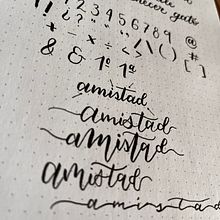 1 2 3 4 5 6 7 8 9 @
* - × ÷ < > / \ ( ) # [ ]
& & 1º 1ª
amistad
amistad
amistad
amistad
amistad